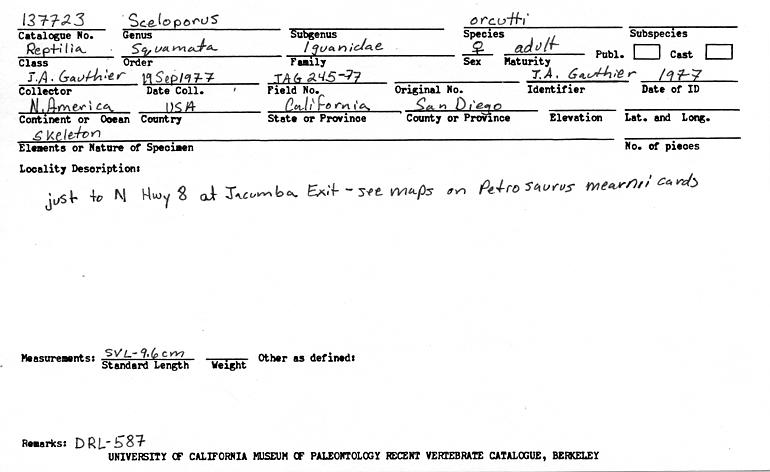 137723 Sceloporus orcutti
Catalogue No. Genus Subgenus Species Subspecies
Reptilia Squamata Iguanidae ♀ adult Publ. Cast
Class Order Family Sex Maturity
J.A. Gauthier 19Sep1977 JAG 245-77 J.A. Gauthier 1977
Collector Date Coll. Field No. Original No. Identifier Date of ID
N. America USA California San Diego
Continent or Ocean Country State or Province County or Province Elevation Lat. and Long.
skeleton
Elements or Nature of Specimen No. of pieces
Locality Description:
just to N Hwy 8 at Jacumba Exit - see maps on Petrosaurus mearnsi cards
Measurements: SVL-9.6cm Other as defined:
Standard Length Weight
Remarks: DRL-587
UNIVERSITY OF CALIFORNIA MUSEUM OF PALEONTOLOGY RECENT VERTEBRATE CATALOGUE, BERKELEY